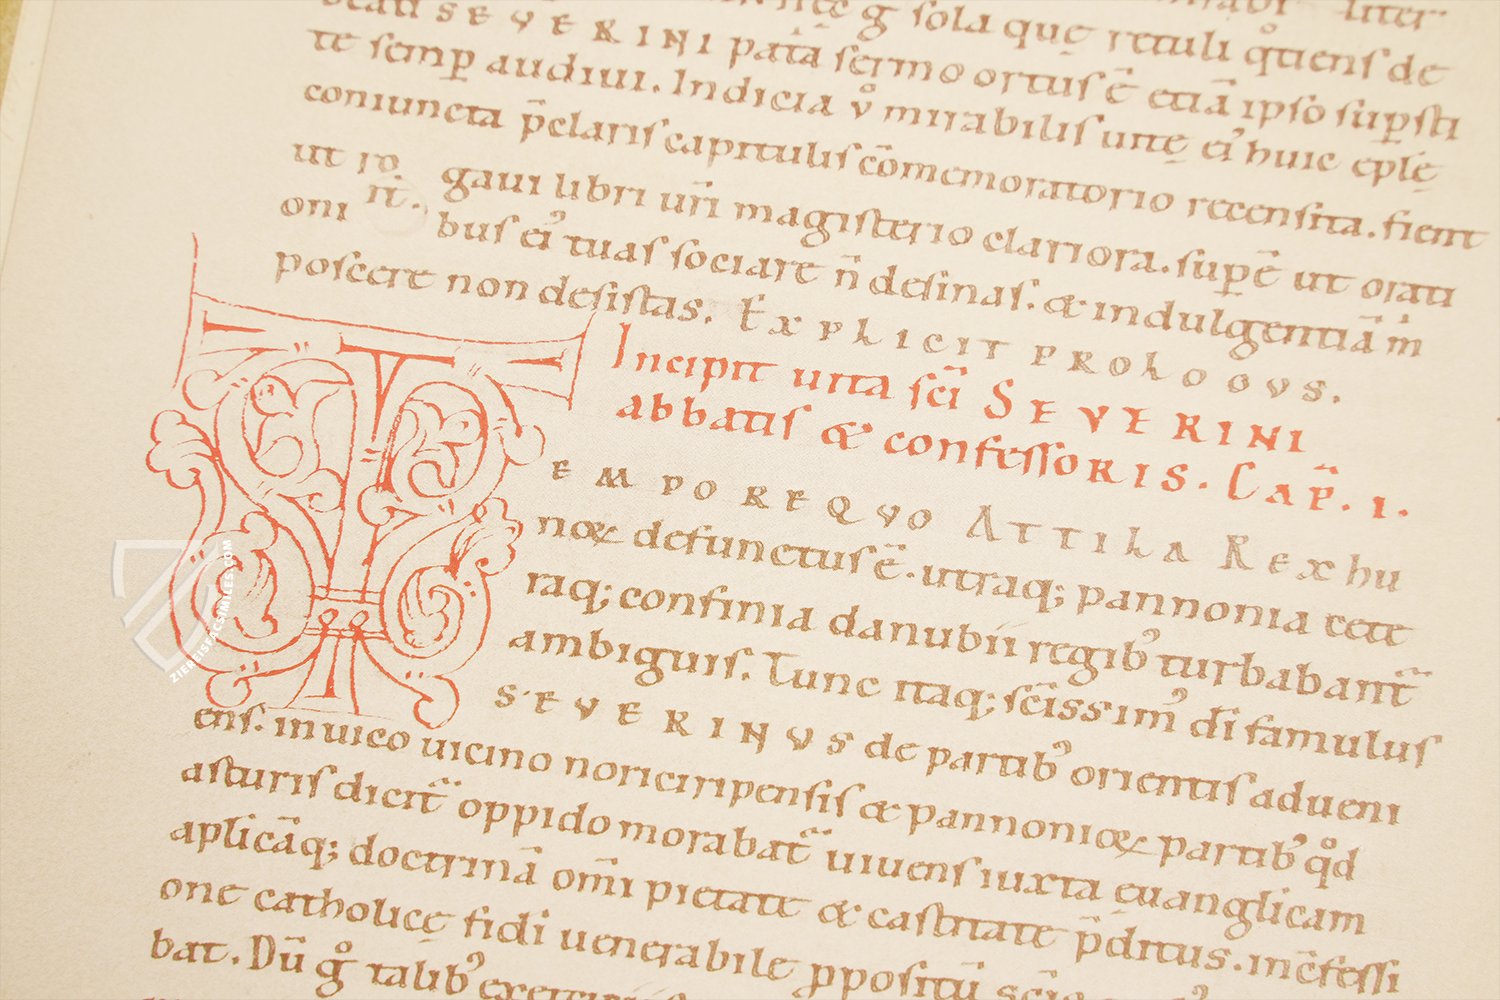 beati SEVERINI patā sermo ortus ē etiā ipso supsti
te semp audiui. Indicia v̊ mirabilis uite ei' huic eple
coniuncta p̄claris capitulis cōmemoratorio recensita. fient
ut ro gaui libri ur̄i magisterio clariora. supē ut orati
oni bus ei' tuas sociare n̄ desinas. & indulgentiā m
poscere non desistas. EXPLICIT PROLOGVS.
Incipit uita sc̄i SEVERINI
abbatis & confessoRIS. CAP̄. I.
TEMPORE QVO ATTILA REX hu
no& defunctus ē. utraq; pannonia cete
raq; confinia danubii regib' turbabant
ambiguis. Tunc itaq; sc̄issim' dī famulus
SEVERINVS de partib' orientis adueni
ens. in uico uicino noriciripensis & pannonio& partib' q̊d
asturis dicit oppido morabat uiuens iuxta euanglicam
aplicāq; doctrinā om̄i pietate & castitate p̄ditus. in c̄fessi
one catholicę fidi uenerabile ppositū
bat. Dū g̊ talib'
ZIEREISFACSIMILES.COM